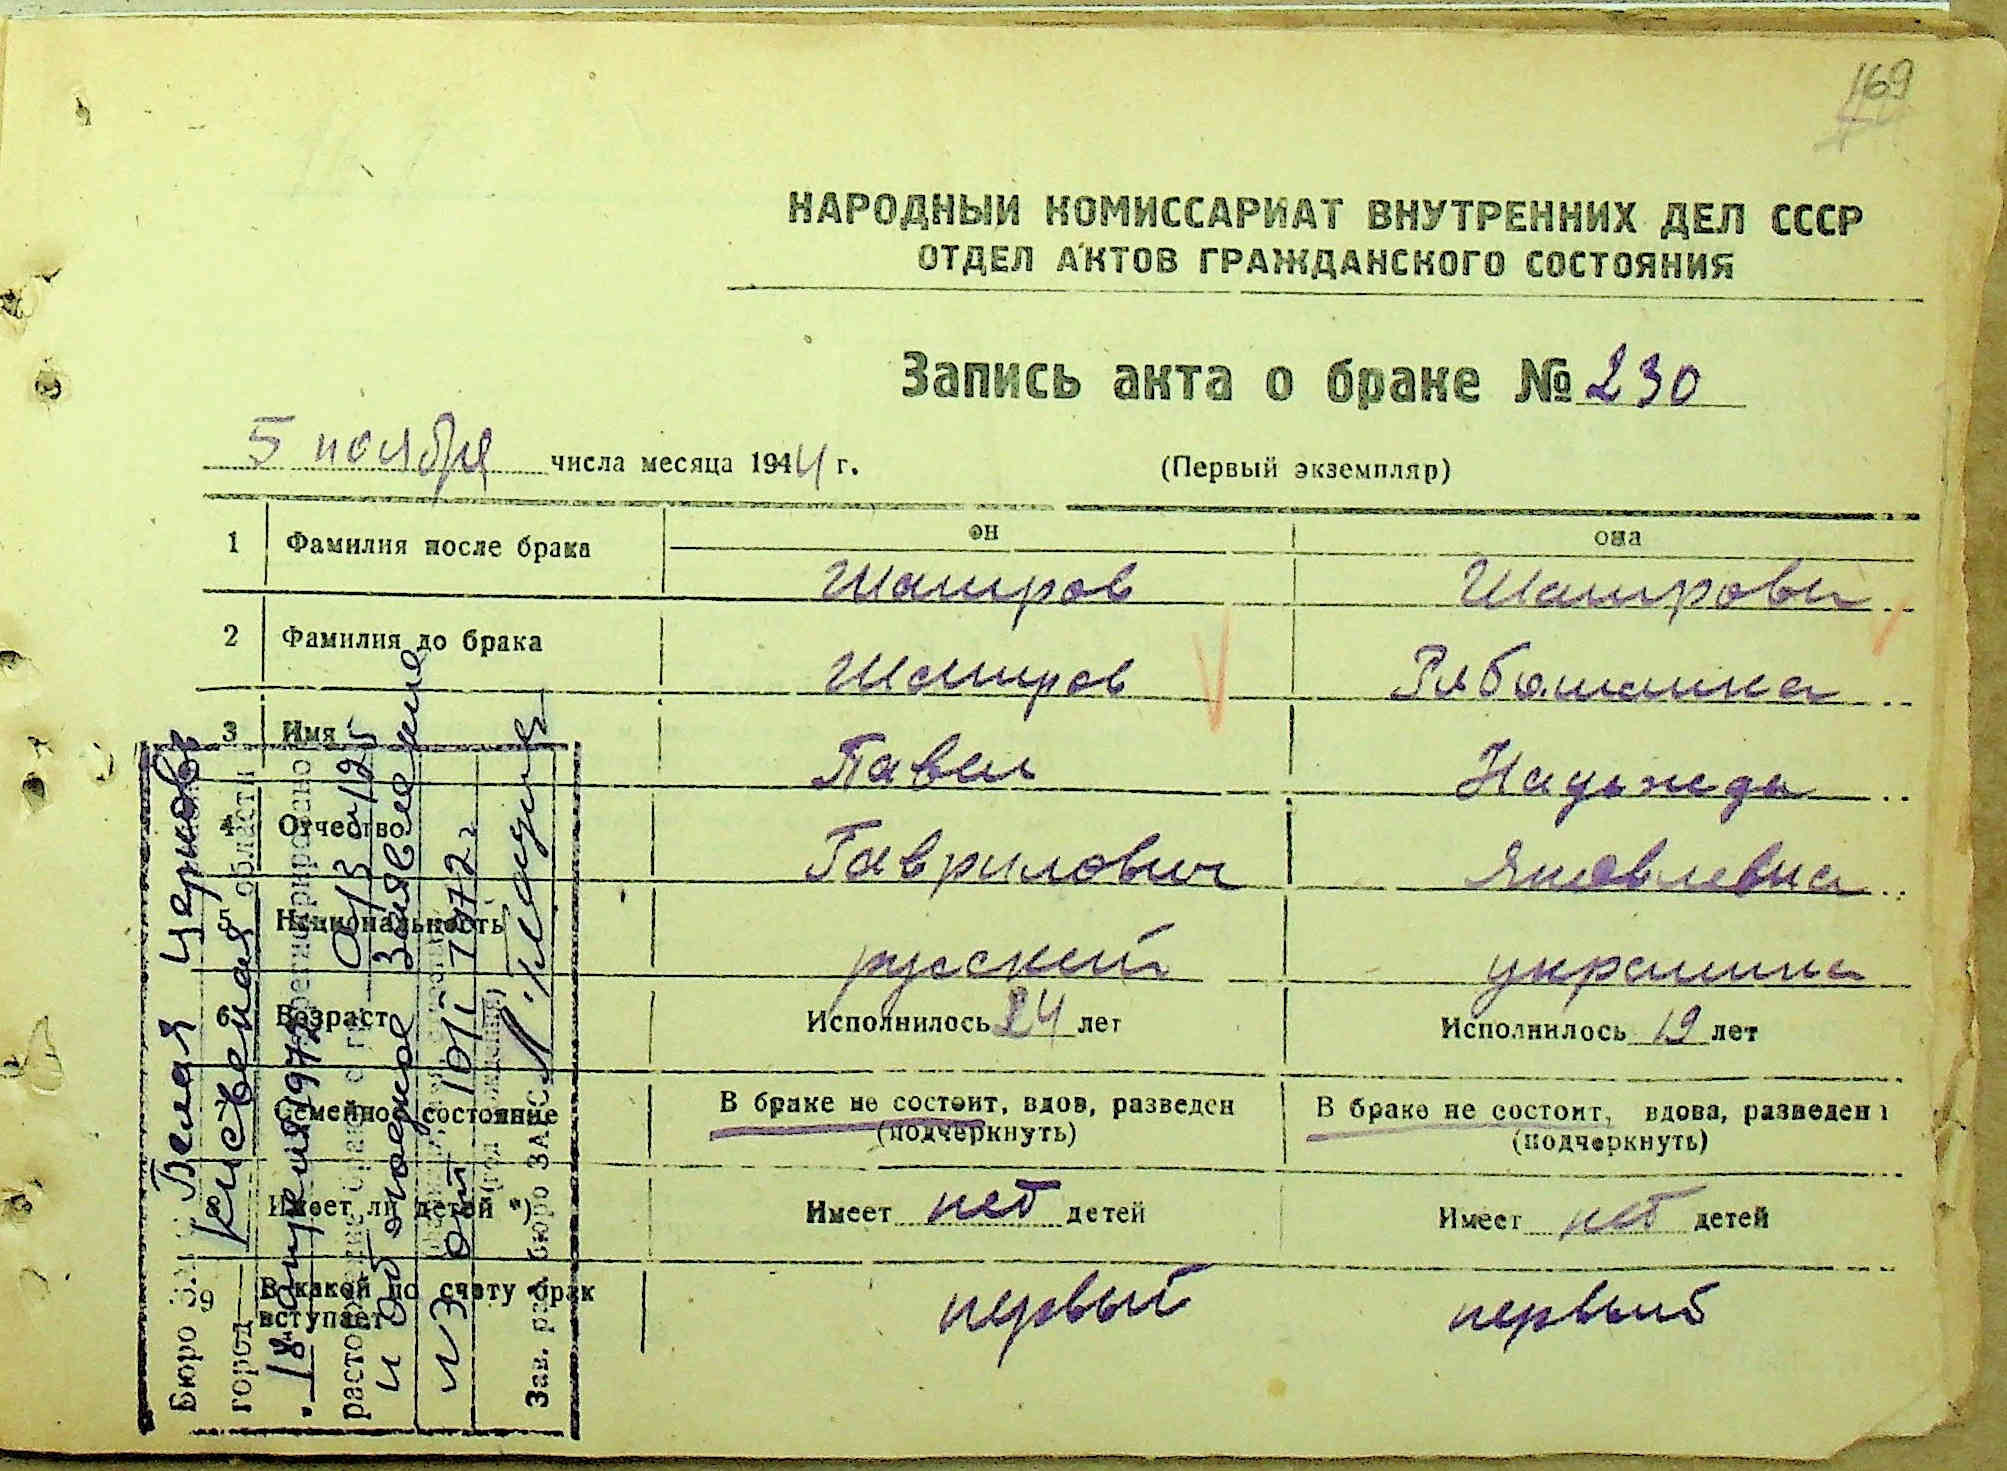 169
НАРОДНЫЙ КОМИССАРИАТ ВНУТРЕННИХ ДЕЛ СССР
ОТДЕЛ АКТОВ ГРАЖДАНСКОГО СОСТОЯНИЯ
Запись акта о браке № 230
5 ноября числа месяца 1944 г. (Первый экземпляр)
он она
1 Фамилия после брака Шаиров Шаирова
2 Фамилия до брака Шаиров Рябошапка
3 Имя Павел Надежда
4 Отчество Гаврилович Яковлевна
5 Национальность русский украинка
6 Возраст Исполнилось 24 лет Исполнилось 19 лет
7 Семейное состояние В браке не состоит, вдов, разведен В браке не состоит, вдова, разведен
(подчеркнуть) (подчеркнуть)
8 Имеет ли детей *) Имеет нет детей Имеет нет детей
9 В какой по счету брак первый первый
вступает
Бюро Белая Церковь
город Киевская области
"18" апреля 1972 зарегистрировано
расторжение брака о чем
и обоюдное заявление
из 10/I 1972 г
Зав. рай. бюро ЗАГС